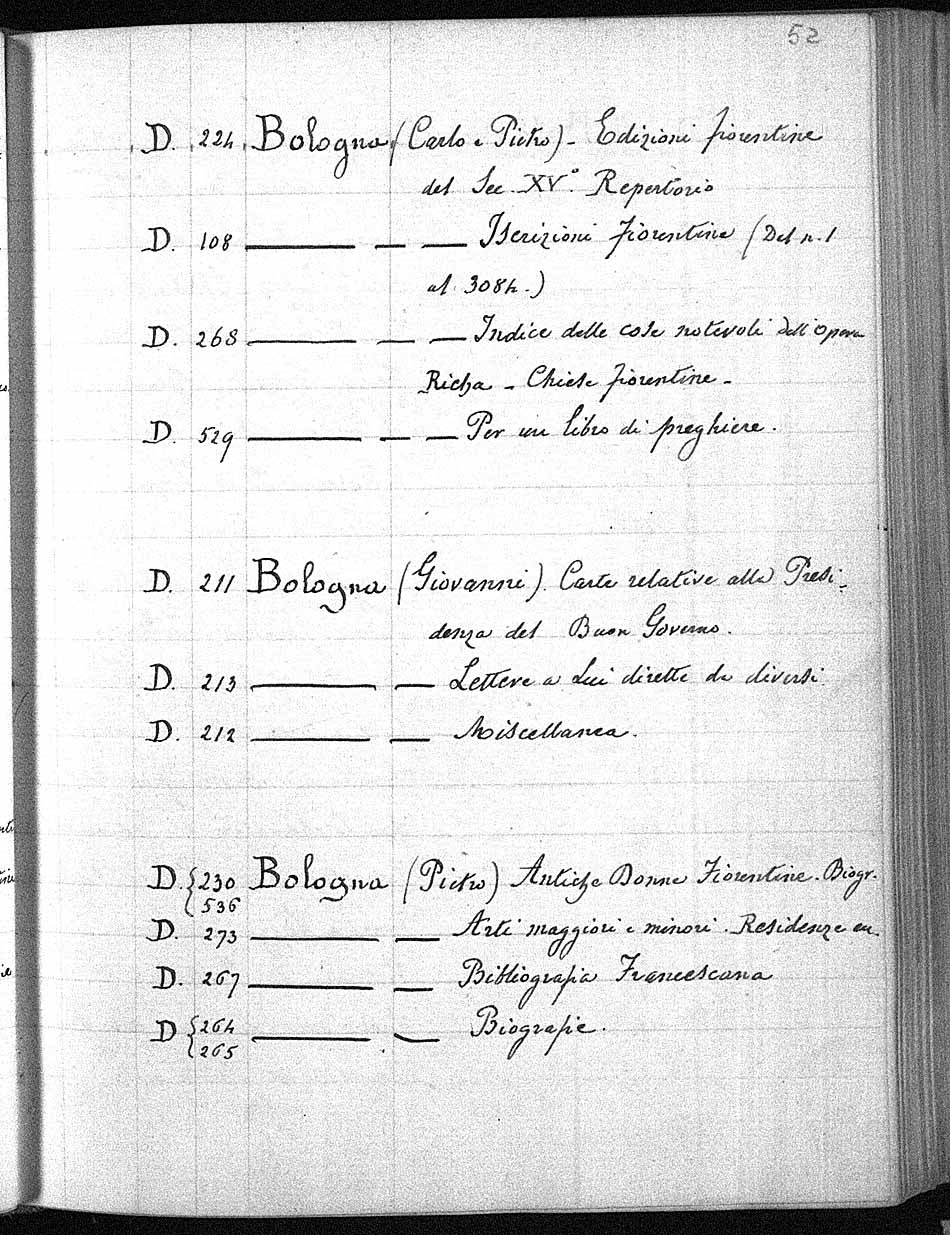 52
D. 224 Bologna (Carlo e Pietro) - Edizioni fiorentine
del Sec. XV.° Repertorio
D. 108 ——— — — Iscrizioni fiorentine (Dal n. 1
al 3084.)
D. 268 ——— — — Indice delle cose notevoli dell'opera
Richa - Chiese fiorentine -
D. 529 ——— — — Per un libro di preghiere.
D. 211 Bologna (Giovanni). Carte relative alla Presi-
denza del Buon Governo.
D. 213 ——— — Lettere a Lui dirette da diversi.
D. 212 ——— — Miscellanea.
D. {230 Bologna (Pietro) Antiche Donne Fiorentine. Biogr.
536
D. 273 ——— — Arti maggiori e minori. Residenze
D. 267 ——— — Bibliografia Francescana
D {264 ——— — Biografie.
265